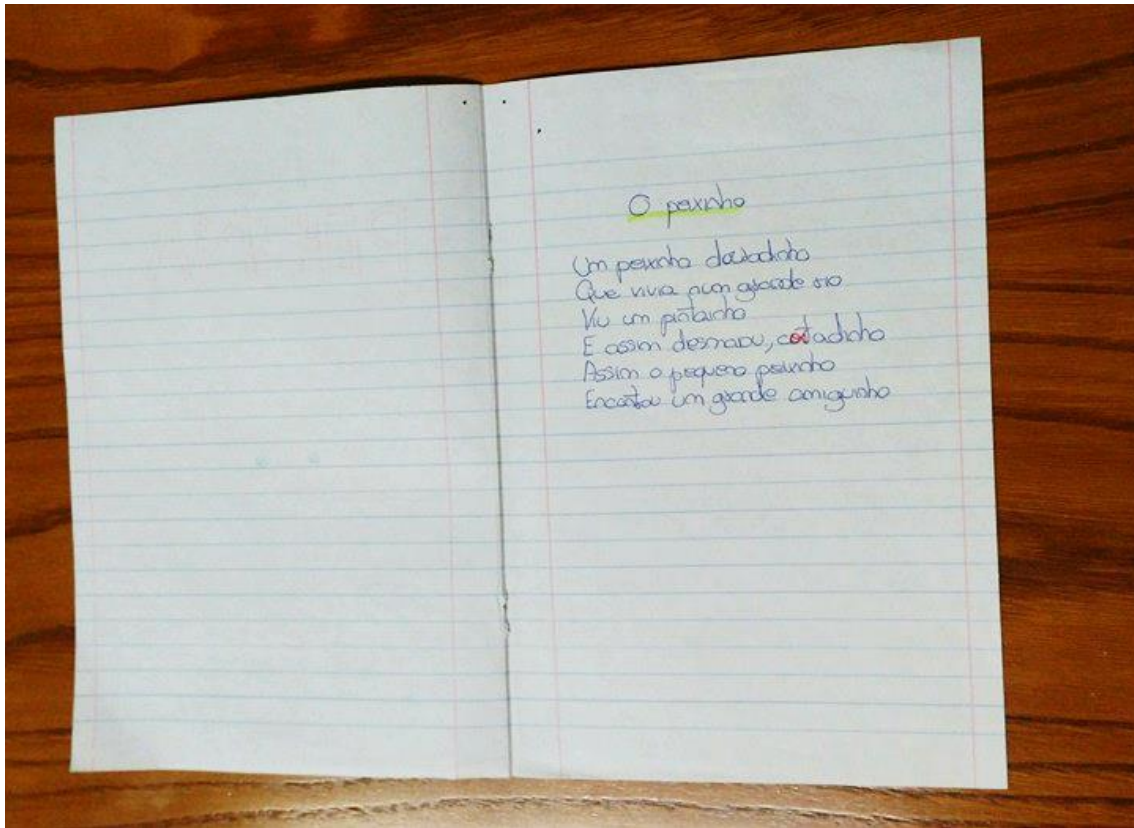 O peixinho
Um peixinho douradinho
Que vivia num grande rio
Viu um pintainho
E assim desmaiou, coitadinho
Assim o pequeno peixinho
Encontrou um grande amiguinho